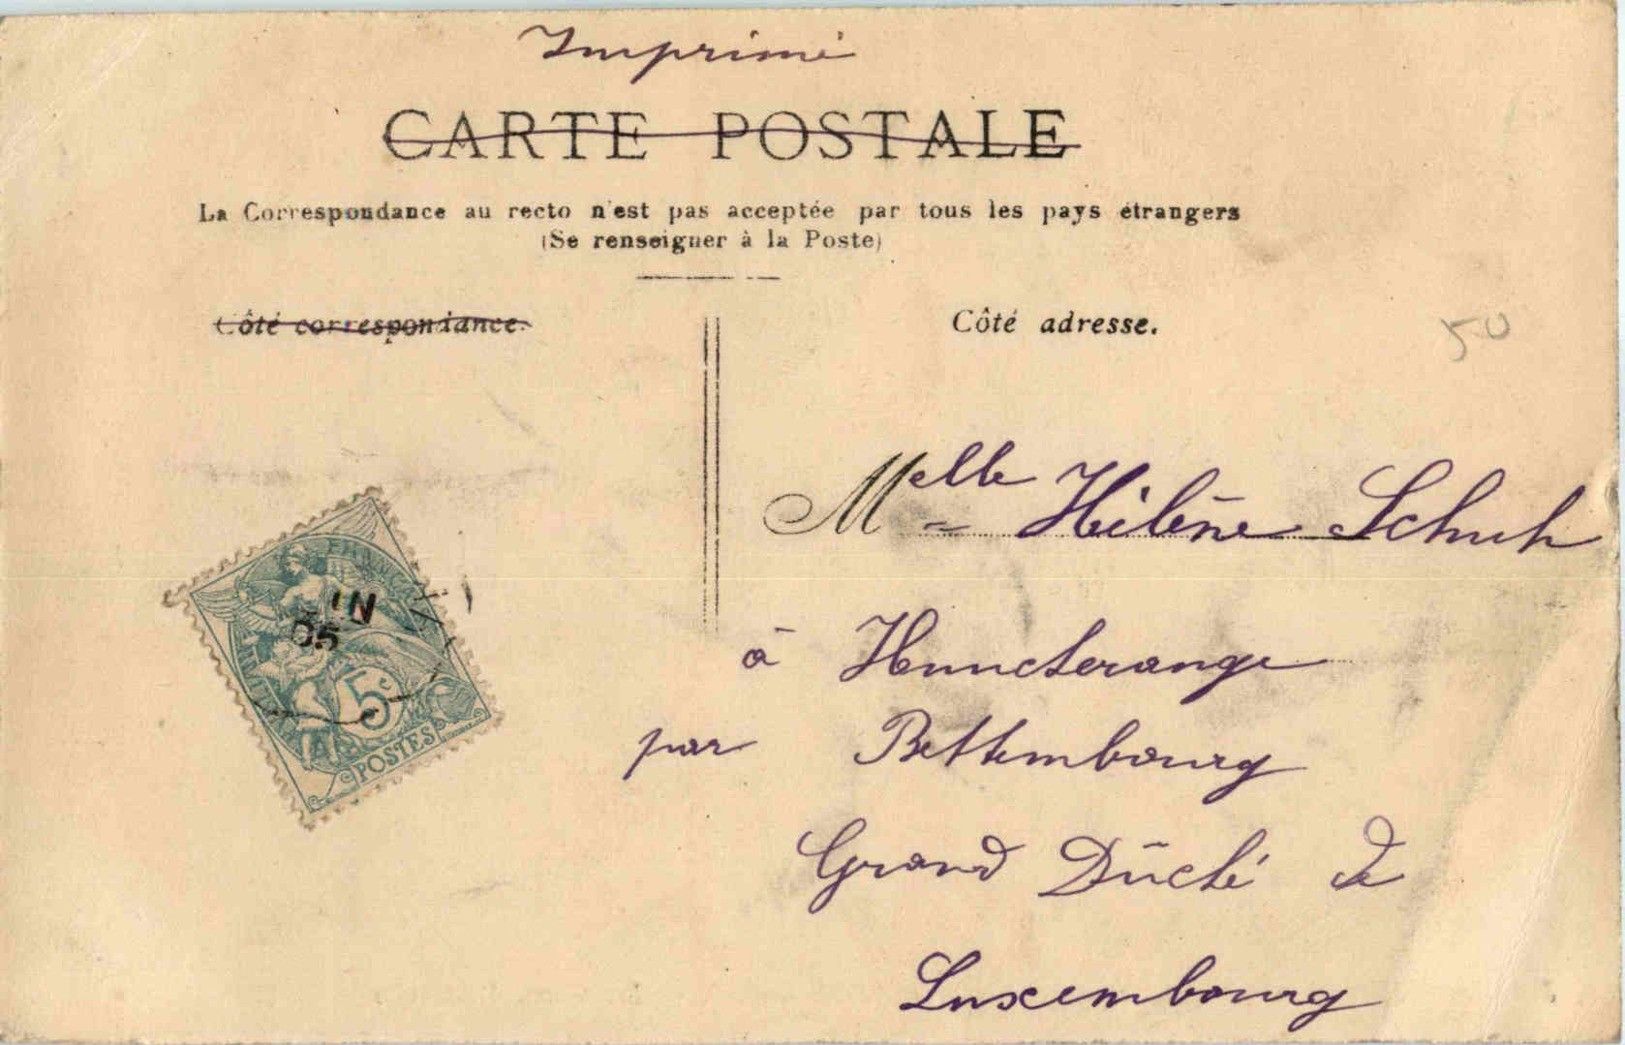 Imprimé
CARTE POSTALE
La Correspondance au recto n'est pas acceptée par tous les pays étrangers
(Se renseigner à la Poste)
Côté correspondance.
Côté adresse.
50
Melle Hélène Schuh
à Huncherange
par Bettembourg
Grand Dûché de
Luxembourg
IN
05
5c
POSTES